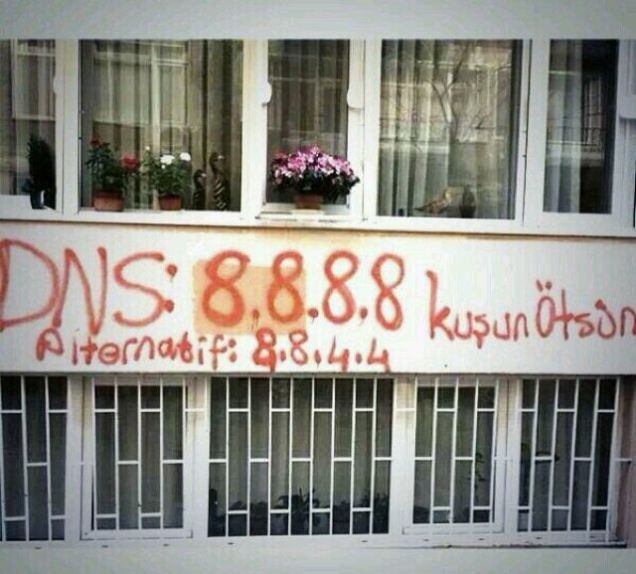 DNS: 8.8.8.8 kuşun Ötsün
Alternatif: 8.8.4.4